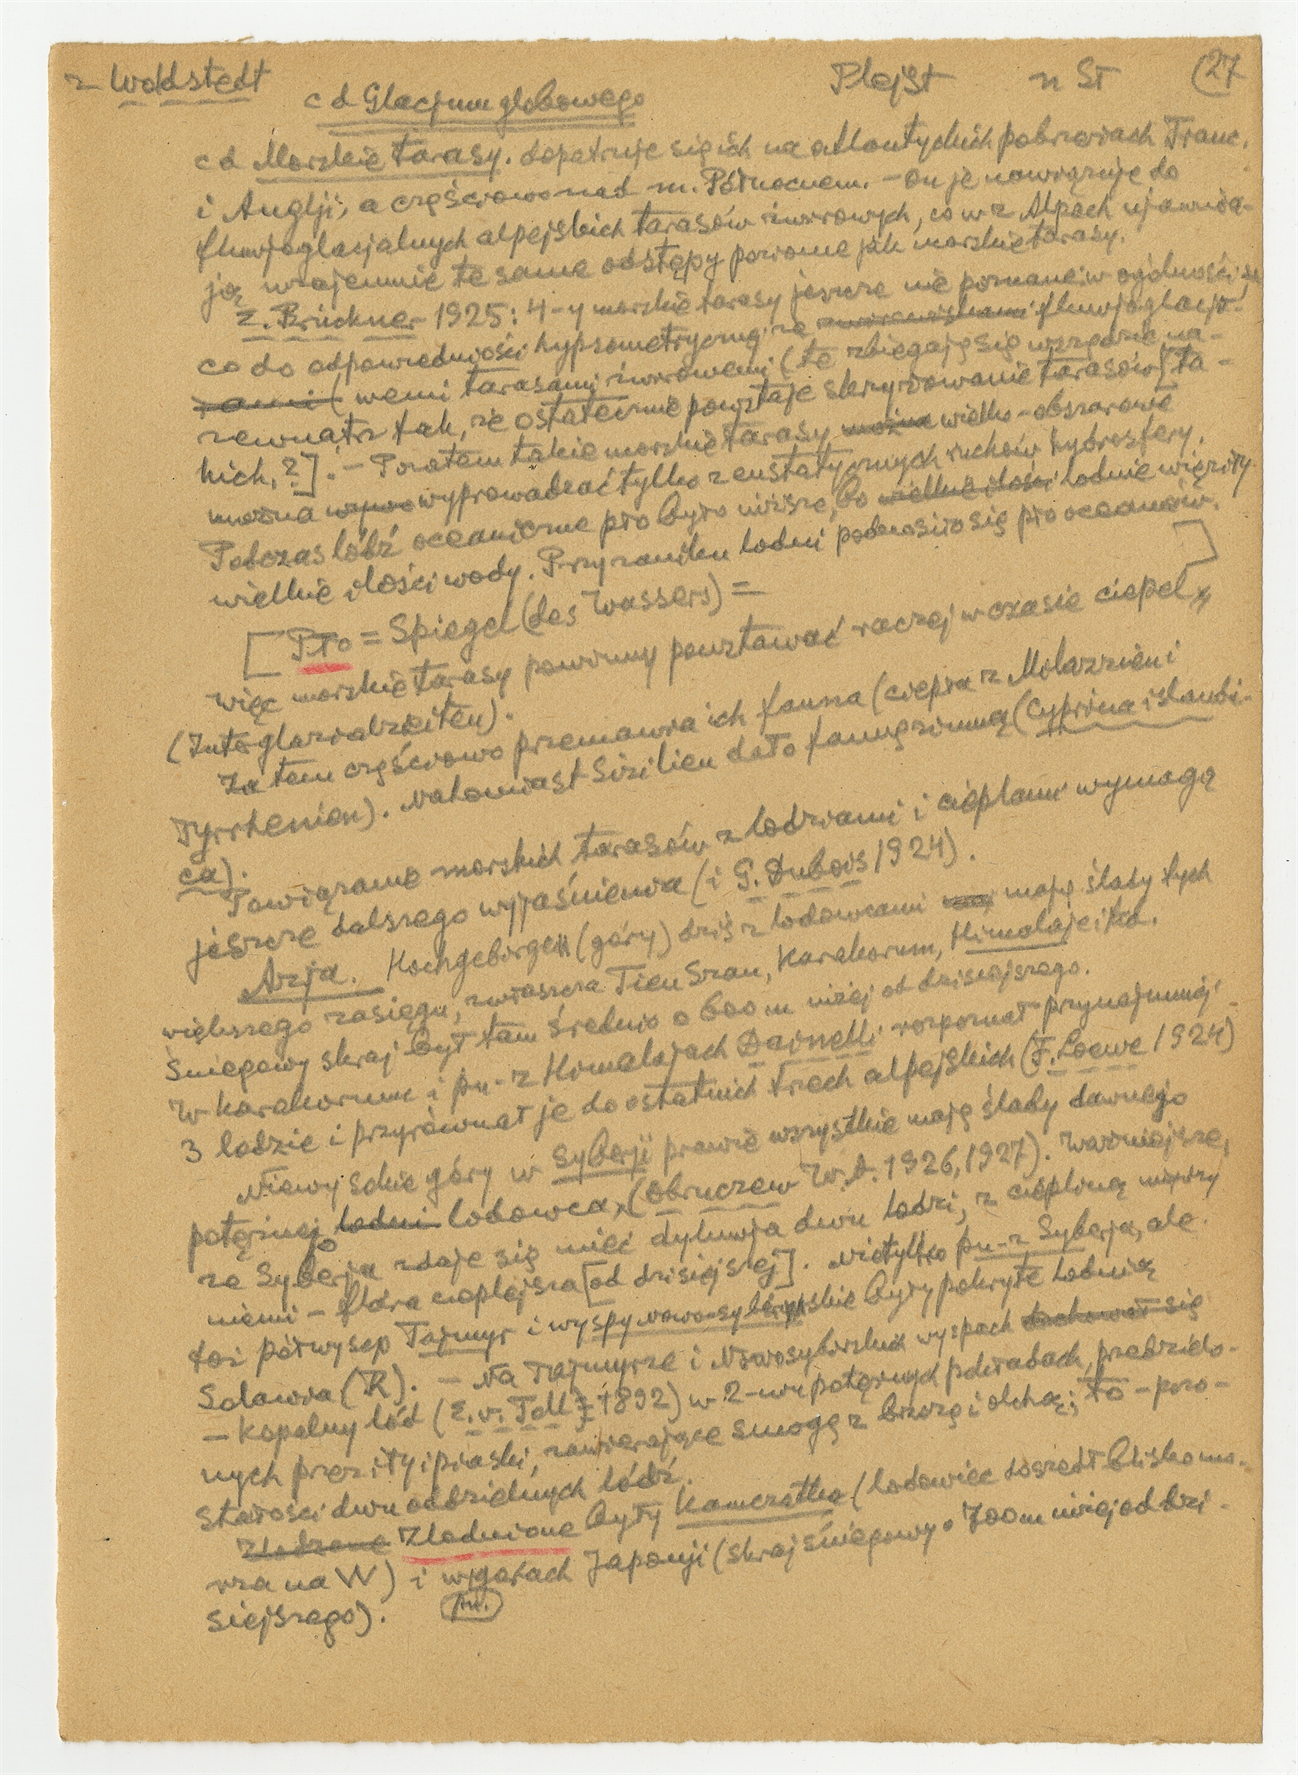 z Woldstedt
Plejst n ST (27
c d Glacjum globowego
c d Morskie tarasy. dopatruje się ich na atlantyckich pobrzeżach Franc.
i Anglji, a częściowo nad m. Północnem. – on je nawiązuje do
fluwjoglacjalnych alpejskich tarasów żwirowych, co w z Alpach ujawnia-
ją wzajemnie te same odstępy poziome jak morskie tarasy.
E. Brückner 1925: 4-y morskie tarasy jeszcze nie poznane w ogólności są
co do odpowiedniości hypsometrycznej ze fluwjoglacjo-
wemi tarasami żwirowemi (te zbiegają się wszędzie na-
zewnątrz tak, że ostatecznie powstaje skrzyżowanie tarasów [ta-
kich, ?]. – Pozatem takie morskie tarasy można wielko-obszarowe
można wyprowadzać tylko z eustatycznych ruchów hydrosfery.
Podczas lódź oceaniczne pło było niższe, bo wielkie ilości lodnie więziły
wielkie ilości wody. Przy zaniku lodni podnosiło się pło oceanów.
[Pło = Spiegel (des Wassers) = ]
więc morskie tarasy powinny powstawać raczej w czasie ciepel
(Interglazialzeiten).
Za tem częściowo przemawia ich fauna (ciepła z Milazzien i
Tyrrhenien). Natomiast Sizilien dało faunę zimną (Cyprina islandi-
ca).
Powiązanie morskich tarasów z lodziami i cieplami wymaga
jeszcze dalszego wyjaśnienia (i G. Dubois 1924).
Azja. Hochgebirgen (góry) dziś z lodowcami mają ślady tych
większego zasięgu, zwłaszcza Tien Szan, Karakorum, Himalaje itd.
Śniegowy skraj był tam średnio o 600 m niżej od dzisiejszego.
W Karakorum i pn-z Himalajach Dainelli rozpoznał przynajmniej
3 lodzie i przyrównał je do ostatnich trzech alpejskich (F. Loewe 1924)
Niewysokie góry w Syberji prawie wszystkie mają ślady dawnego
potężnego lodni lodowca, (Obruczew W. A. 1926, 1927). Ważniejsze,
że Syberja zdaje się mieć dyluwja dwu lodzi, z cieplną między
niemi – flora cieplejsza [od dzisiejszej]. Nietylko pn-z Syberja, ale
toż półwysep Tajmyr i wyspy nowo-syberyjskie były pokryte lodnią
Solawia (R). – Na Tajmyrze i Nowosyberskich wyspach dochował się
– kopalny lód (E. v. Toll 1892) w 2-wu potężnych pokładach, przedzielo-
nych przez iły i piaski, zawierające smogę z brzozą i olchą; to – pozo-
stałości dwu oddzielnych lódź.
Zlodzone Zlodnione były Kamczatka (lodowiec doszedł blisko mo-
rza na W) i w górach Japonji (skraj śniegowy o 700 m niżej od dzi-
siejszego).
pn.